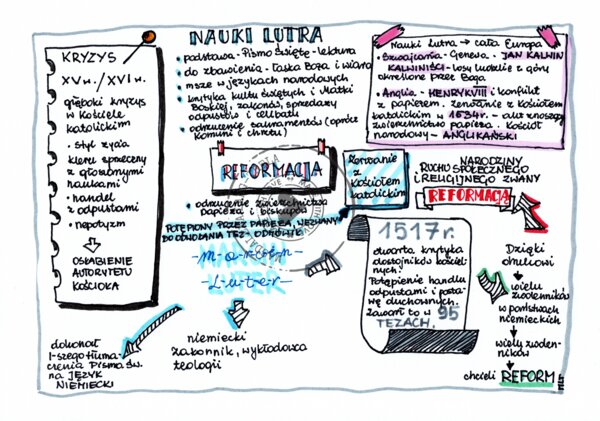 KRYZYS
XV w. / XVI w.
głęboki kryzys
w Kościele
katolickim
• styl życia
kleru sprzeczny
z głoszonymi
naukami
• handel
odpustami
• nepotyzm
OSŁABIENIE
AUTORYTETU
KOŚCIOŁA
NAUKI LUTRA
• podstawa - Pismo Święte - lektura
• do zbawienia - Łaska Boga i wiara
• msze w językach narodowych
• krytyka kultu świętych i Matki
Boskiej, zakonów, sprzedaży
odpustów i celibatu
• odrzucenie sakramentów (oprócz
Komunii i chrztu)
REFORMACJA
• odrzucenie zwierzchnictwa
papieża i biskupów
Nauki Lutra → cała Europa
• Szwajcaria - Genewa - JAN KALWIN
KALWINIŚCI - losy ludzkie z góry
określone przez Boga
• Anglia - HENRYK VIII i konflikt
z papieżem. Zerwanie z Kościołem
katolickim w 1534r. - akt znoszący
zwierzchnictwo papieża. Kościół
narodowy - ANGLIKAŃSKI
Zerwanie
z
Kościołem
katolickim
NARODZINY
RUCHU SPOŁECZNEGO
I RELIGIJNEGO ZWANY
REFORMACJĄ
POTĘPIONY PRZEZ PAPIEŻA, WEZWANY
DO ODWOŁANIA TEZ - ODMÓWIŁ
MARCIN
LUTER
1517 r.
otwarta krytyka
dostojników kościel-
nych.
Potępienie handlu
odpustami i posta-
wę duchownych.
Zawarł to w 95
TEZACH.
Dzięki
drukowi
wielu
zwolenników
w państwach
niemieckich
wielu zwolen-
ników
chcieli REFORM
dokonał
1-szego tłuma-
czenia Pisma Św.
na JĘZYK
NIEMIECKI
niemiecki
zakonnik, wykładowca
teologii